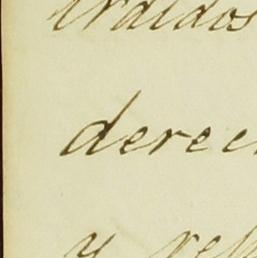 traidos
derec
y rem